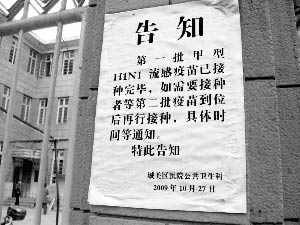 告知
第一批甲型
H1N1 流感疫苗已接
种完毕，如需要接种
者等第二批疫苗到位
后再行接种，具体时
间等通知。
特此告知
城关区医院公共卫生科
2009年10月27日